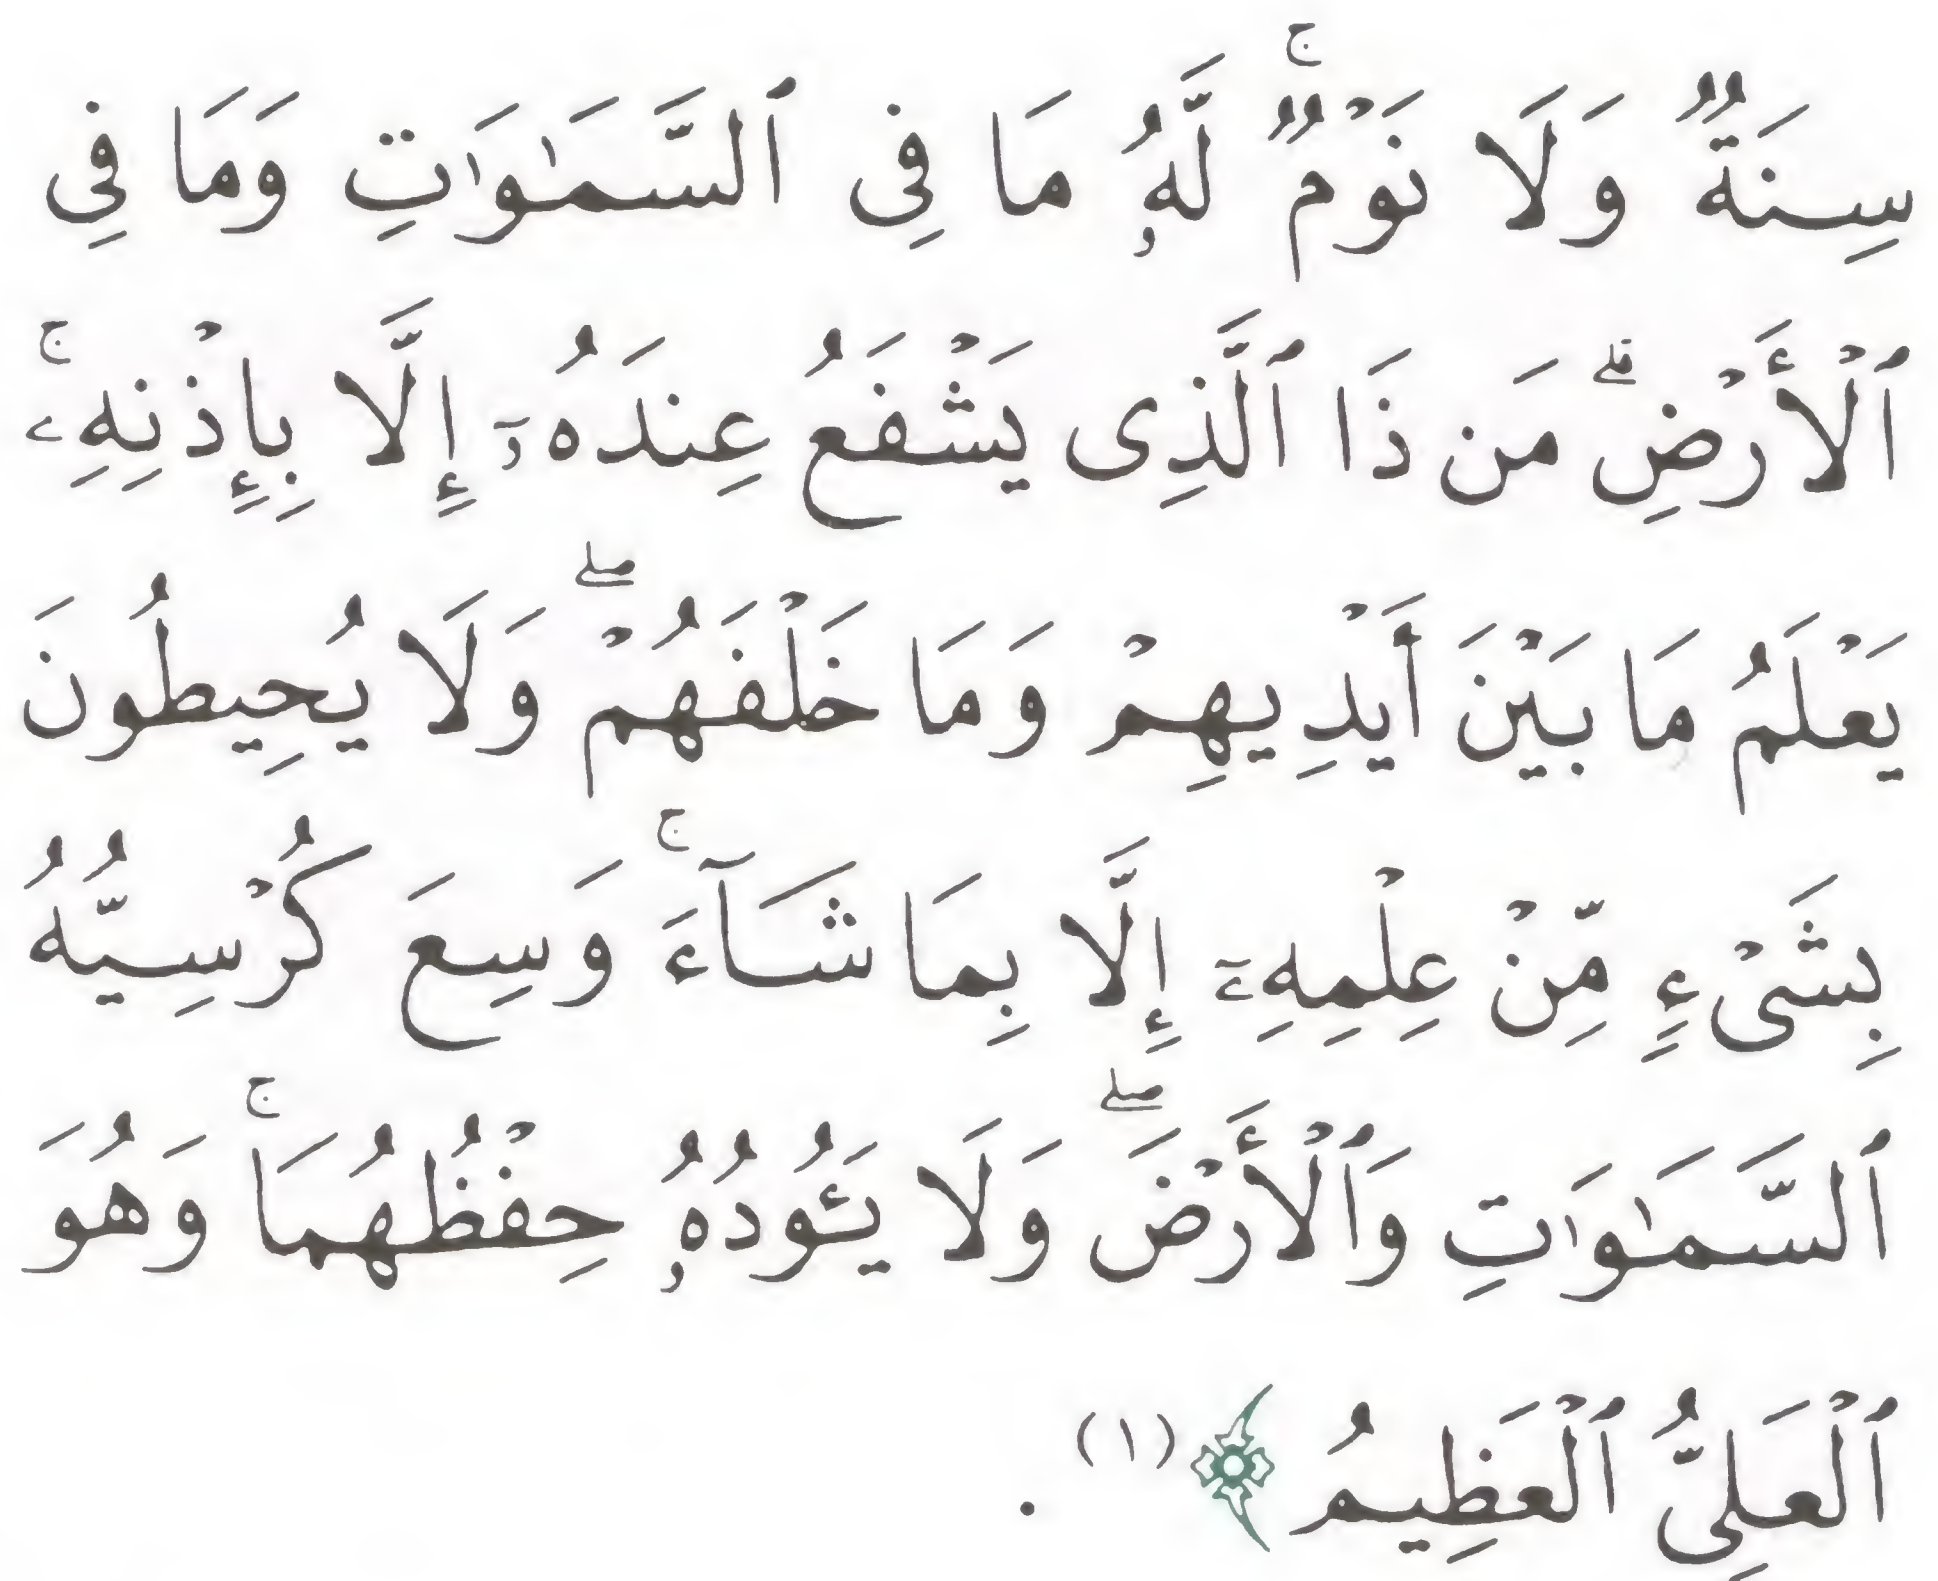 سِنَةٌ وَلَا نَوْمٌ ۚ لَّهُۥ مَا فِى ٱلسَّمَـٰوَٰتِ وَمَا فِى
ٱلْأَرْضِ ۗ مَن ذَا ٱلَّذِى يَشْفَعُ عِندَهُۥٓ إِلَّا بِإِذْنِهِۦ ۚ
يَعْلَمُ مَا بَيْنَ أَيْدِيهِمْ وَمَا خَلْفَهُمْ ۖ وَلَا يُحِيطُونَ
بِشَىْءٍ مِّنْ عِلْمِهِۦٓ إِلَّا بِمَا شَآءَ ۚ وَسِعَ كُرْسِيُّهُ
ٱلسَّمَـٰوَٰتِ وَٱلْأَرْضَ ۖ وَلَا يَـُٔودُهُۥ حِفْظُهُمَا ۚ وَهُوَ
ٱلْعَلِىُّ ٱلْعَظِيمُ ﴾ (١) .